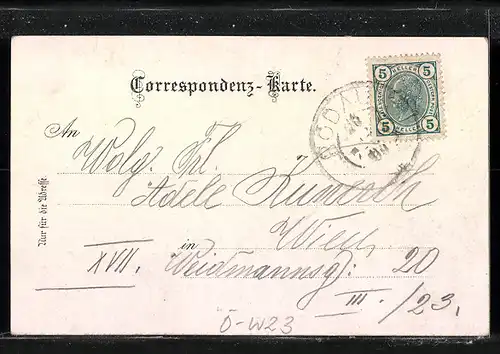 Correspondenz-Karte.
5 HELLER 5
5 HELLER 5
RODAU
An
Wolg. Frl.
Adele
Wien
in
XVII. Weidmannsg: 20
III. /23.
Nur für die Adresse.
Ö-W23